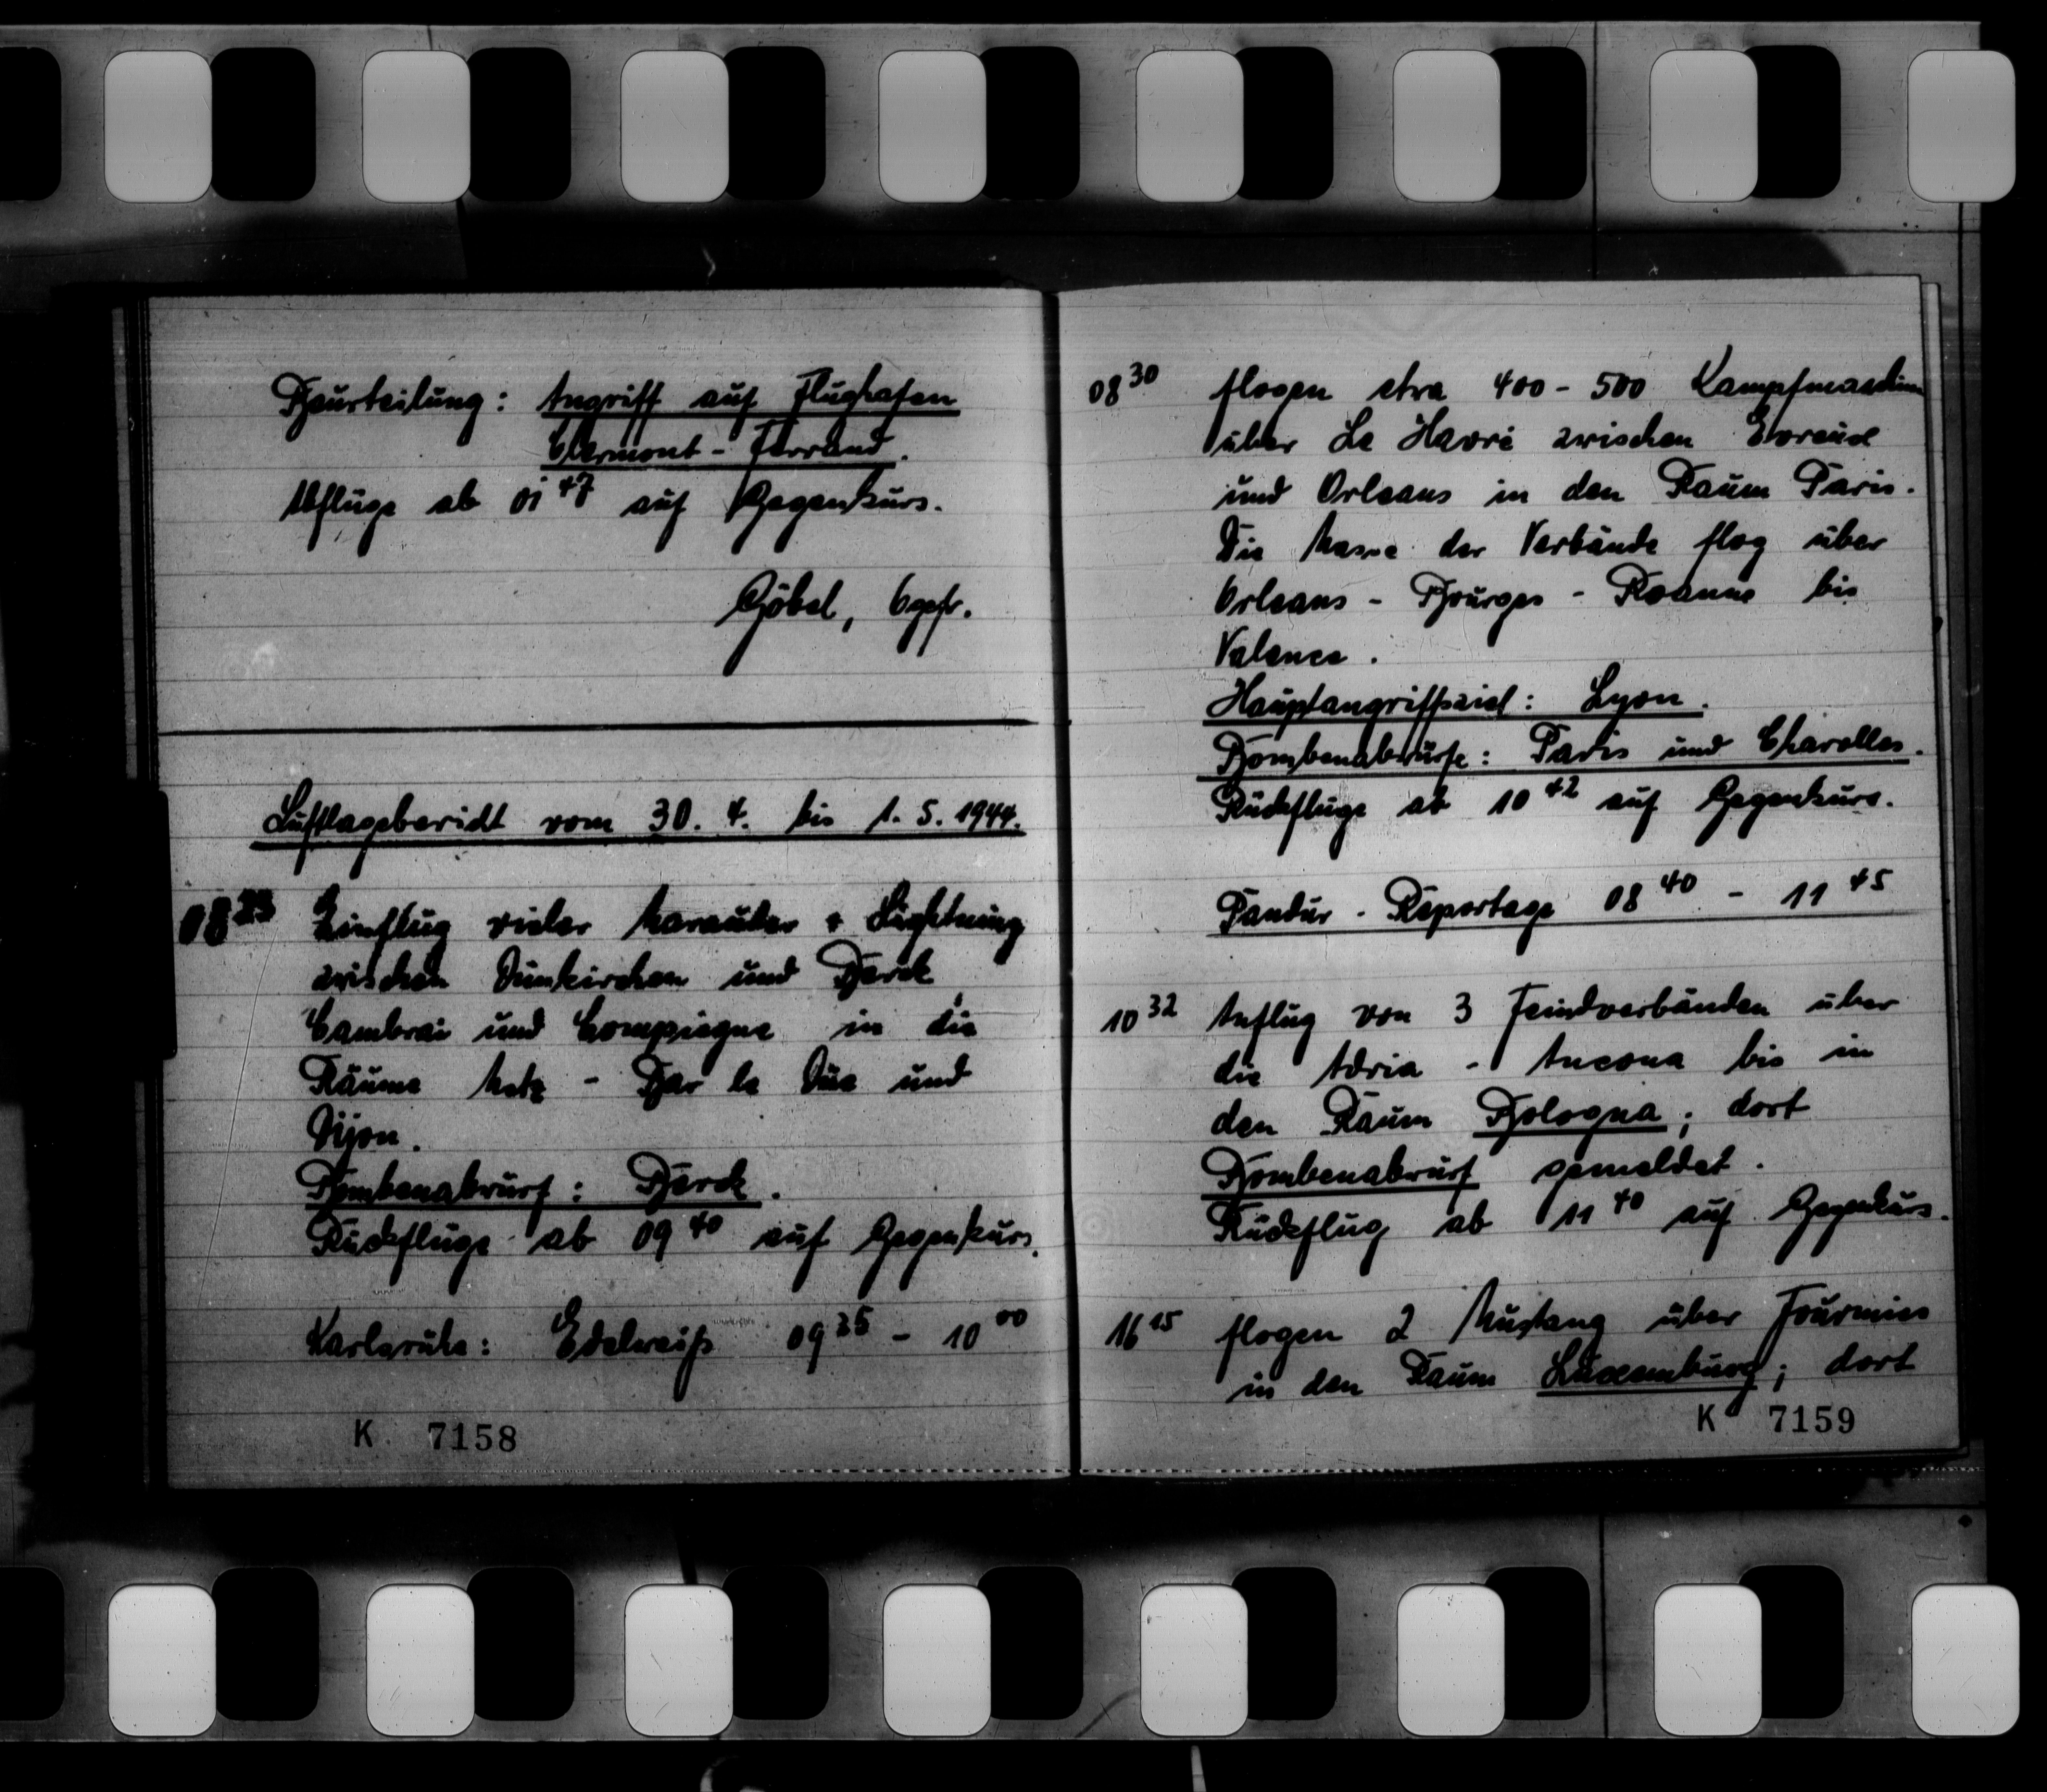 Beurteilung: Angriff auf Flughafen
Clermont-Ferrand.
Abflüge ab 01 47 auf Gegenkurs.
Göbel, Ogefr.
Luftlagebericht vom 30. 4. bis 1. 5. 1944.
08 23 Einflug vieler Marauder + Lightning
zwischen Dünkirchen und Berck
Cambrai und Compiegne in die
Räume Metz - Bar le Düc und
Dijon.
Bombenabwurf: Berck.
Rückflüge ab 09 40 auf Gegenkurs.
Karlsruhe: Edelweiß 09 35 - 10 00
K 7158
08 30 flogen etwa 400 - 500 Kampfmaschinen
über Le Havre zwischen Evreux
und Orleans in den Raum Paris.
Die Masse der Verbände flog über
Orleans - Bourges - Roanne bis
Valence.
Hauptangriffsziel: Lyon.
Bombenabwürfe: Paris und Charolles.
Rückflüge ab 10 42 auf Gegenkurs.
Pandur-Reportage 08 40 - 11 45
10 32 Anflug von 3 Feindverbänden über
die Adria - Ancona bis in
den Raum Bologna; dort
Bombenabwurf gemeldet.
Rückflug ab 11 40 auf Gegenkurs.
16 15 flogen 2 Mustang über Fourmies
in den Raum Luxemburg; dort
K 7159